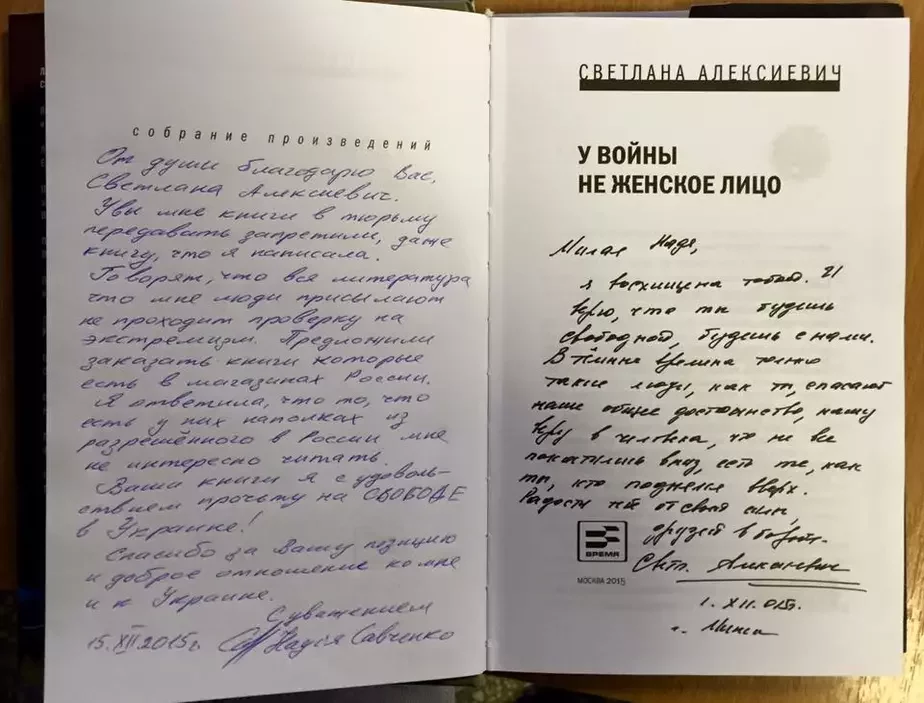 собрание произведений
От души благодарю Вас,
Светлана Алексиевич.
Увы мне книги в тюрьму
передавать запретили, даже
книгу, что я написала.
Говорят, что вся литература
что мне люди присылают
не проходит проверку на
экстремизм. Предложили
заказать книги которые
есть в магазинах России.
Я ответила, что то, что
есть у них на полках из
разрешённого в России мне
не интересно читать.
Ваши книги я с удоволь-
ствием прочту на СВОБОДЕ
в Украине!
Спасибо за Вашу позицию
и доброе отношение ко мне
и к Украине.
С уважением
15.XII.2015г. Надія Савченко
СВЕТЛАНА АЛЕКСИЕВИЧ
У ВОЙНЫ
НЕ ЖЕНСКОЕ ЛИЦО
Милая Надя,
я восхищена тобой. И
верю, что ты будешь
свободной, будешь с нами.
В тёмные времена только
такие люди, как ты, спасают
наше общее достоинство, нашу
веру в человека, что не все
покатились вниз, есть те, как
ты, кто поднялся вверх.
Радости тебе от своей силы,
друзей в
Светл. Алексиевич
ВРЕМЯ
МОСКВА 2015
1. XII. 015г.
г. Минск